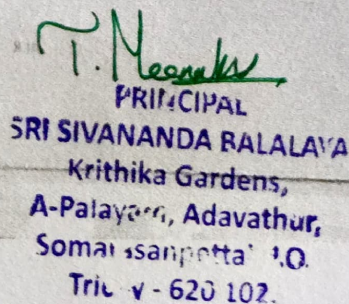 T. Meenaksi
PRINCIPAL
SRI SIVANANDA BALALAYA
Krithika Gardens,
A-Palayam, Adavathur,
P.O.
Trichy - 620 102.